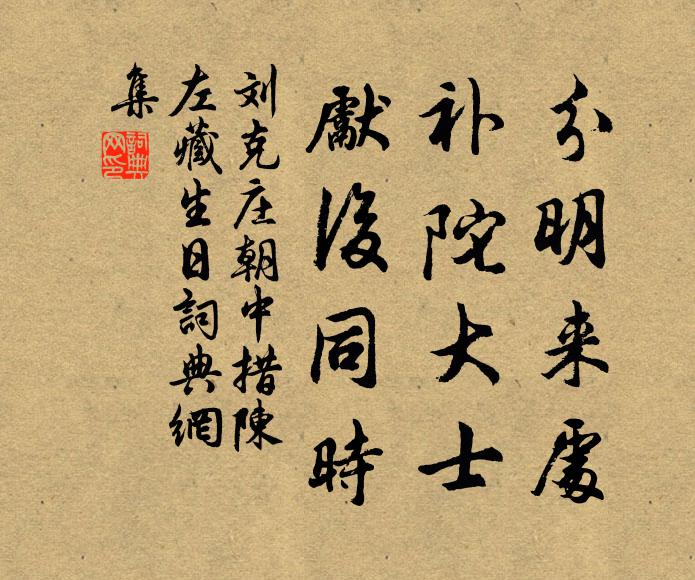 分明来處
补陀大士
獻後同時
刘克庄朝中措陳
左藏生日詞典網
集
詞典
网印